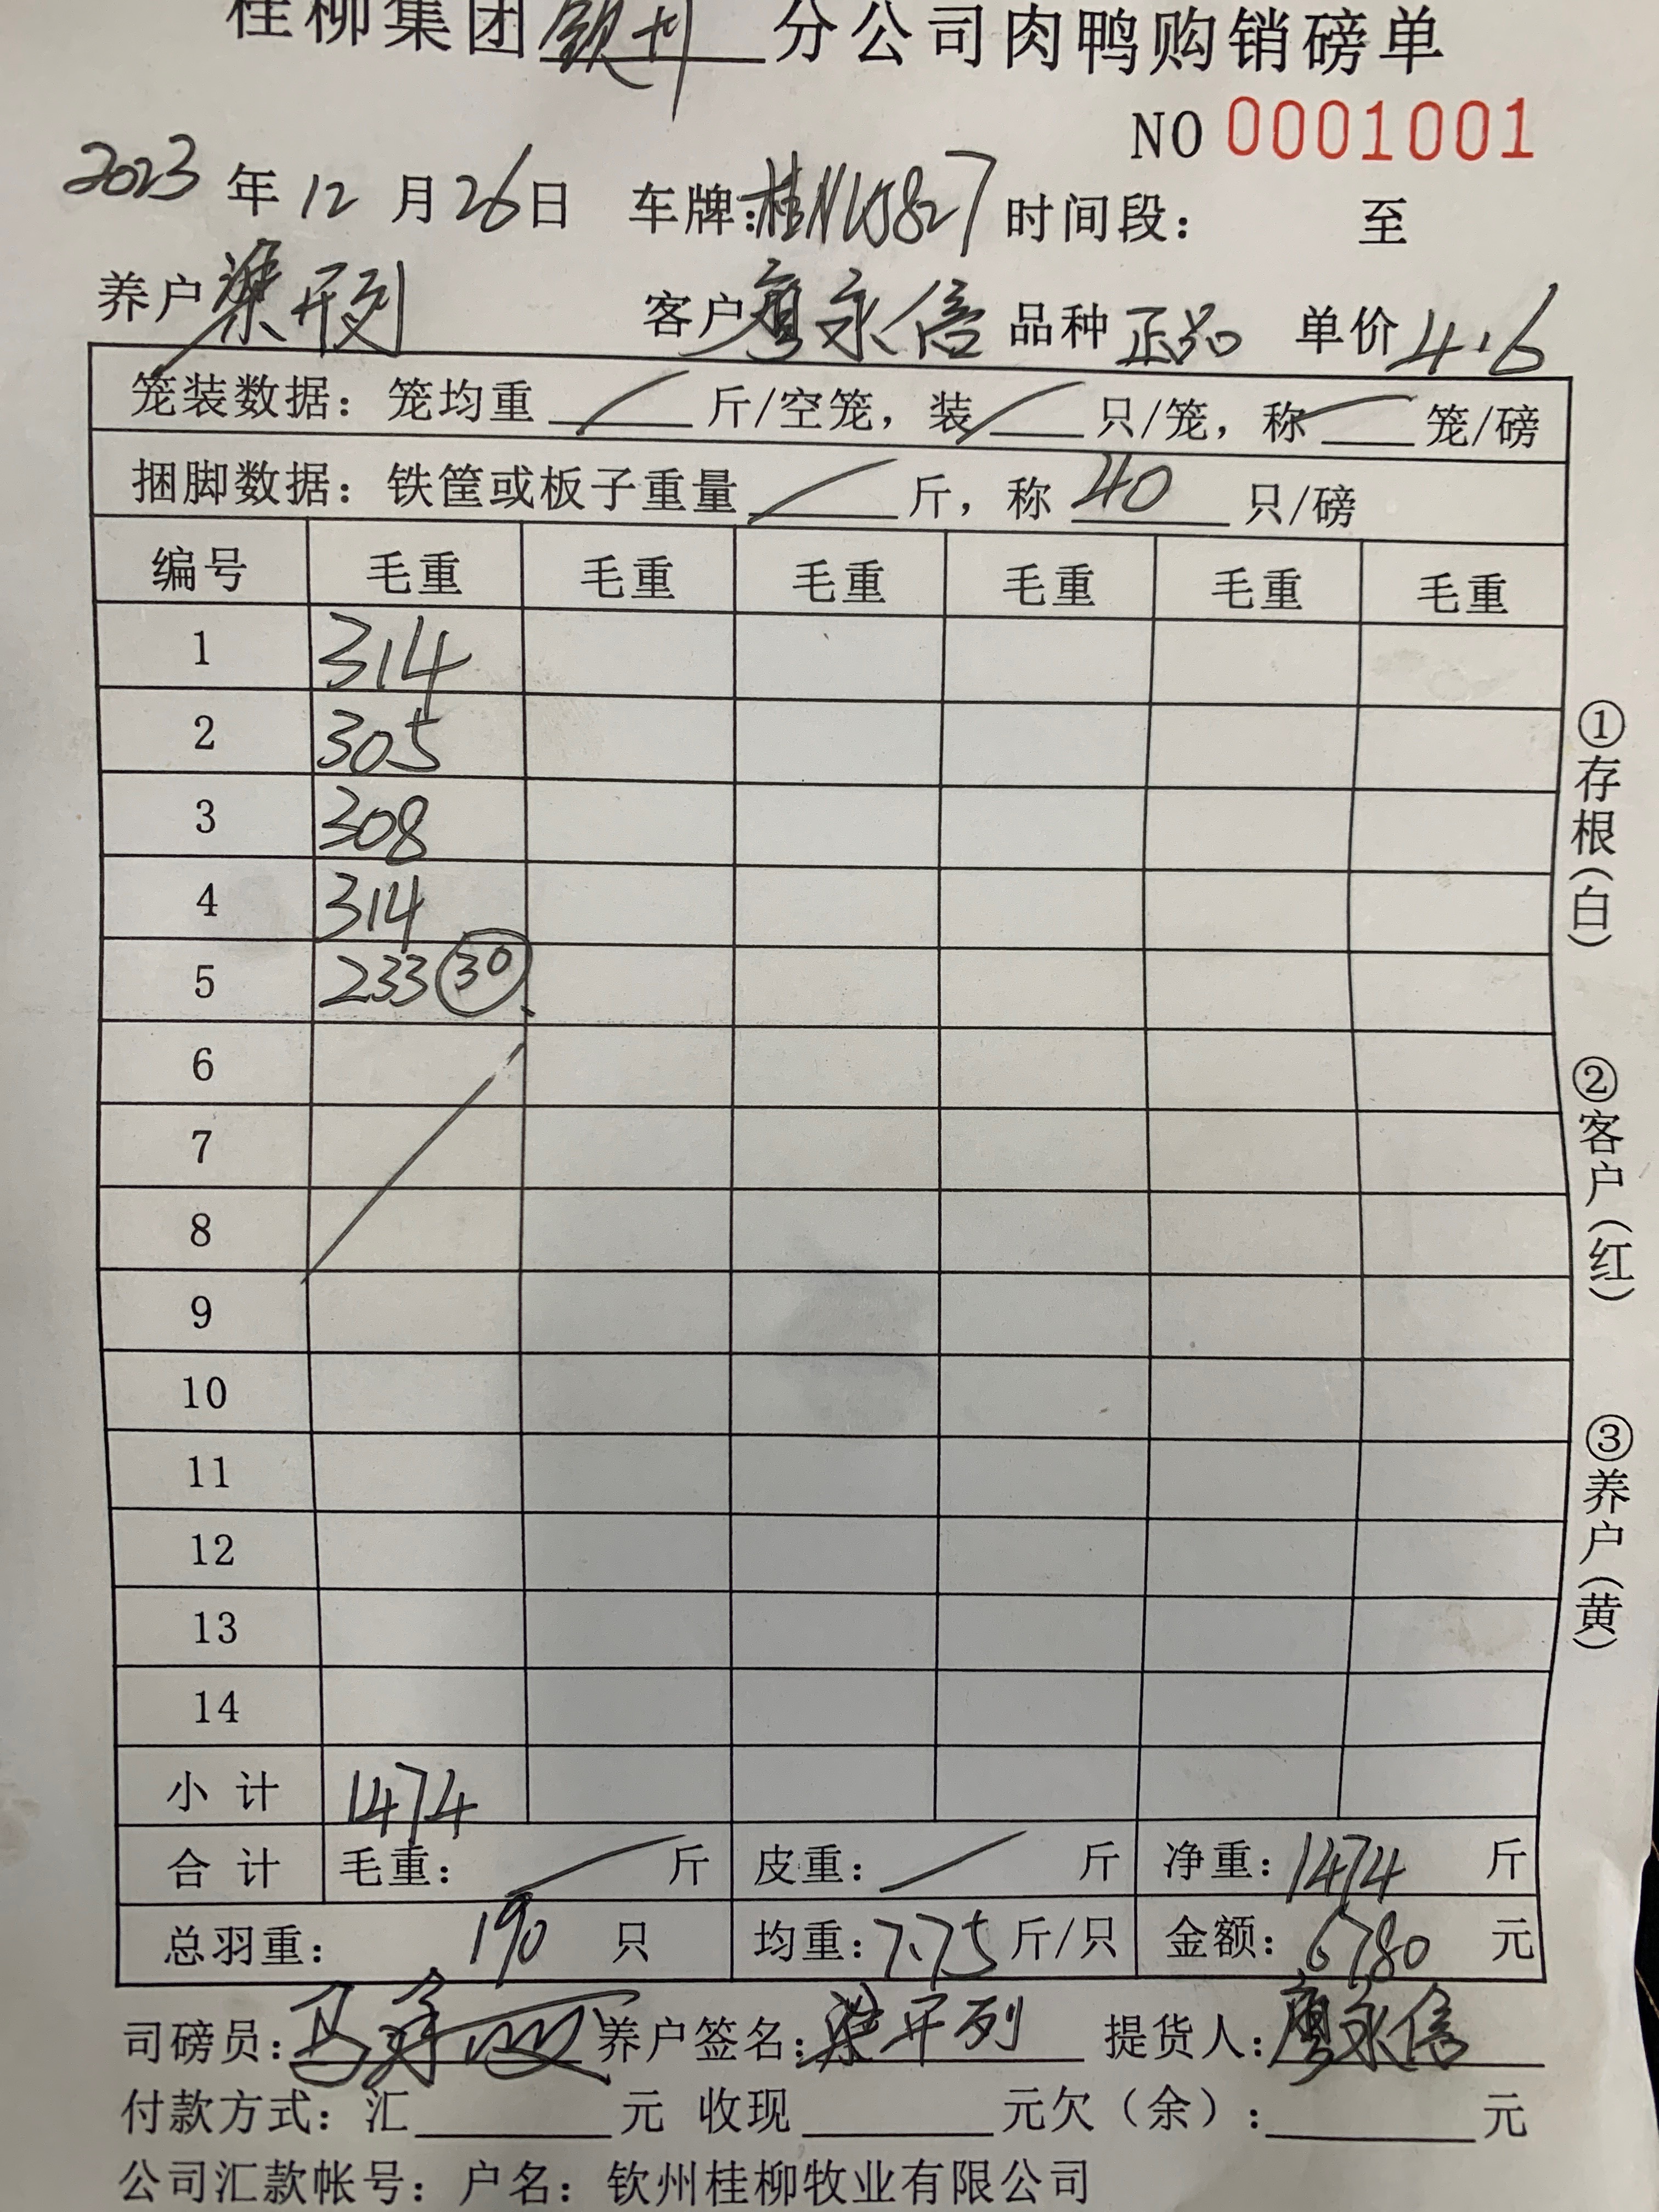 桂柳集团钦州分公司肉鸭购销磅单
NO 0001001
2023年12月26日 车牌:桂NU5827 时间段: 至
养户梁开列 客户廖永信 品种正品 单价4.6
笼装数据：笼均重 / 斤/空笼，装 / 只/笼，称 / 笼/磅
捆脚数据：铁筐或板子重量 / 斤，称 40 只/磅
编号 毛重 毛重 毛重 毛重 毛重 毛重
1 314
2 305
3 308
4 314
5 233 ㉚
6
7
8
9
10
11
12
13
14
小计 1474
合计 毛重： / 斤 皮重： / 斤 净重：1474 斤
总羽重： 190 只 均重：7.75斤/只 金额：6780 元
司磅员： 养户签名：梁开列 提货人：廖永信
付款方式：汇 元 收现 元欠（余）： 元
公司汇款帐号：户名：钦州桂柳牧业有限公司
①存根(白)
②客户(红)
③养户(黄)